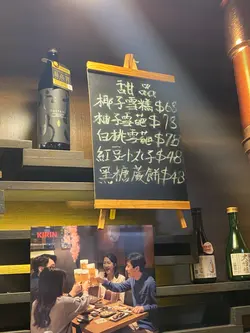 甜品
椰子雪糕$68
柚子雪葩$78
白桃雪葩$78
紅豆小丸子$48
黑糖蕨餅$48
KIRIN